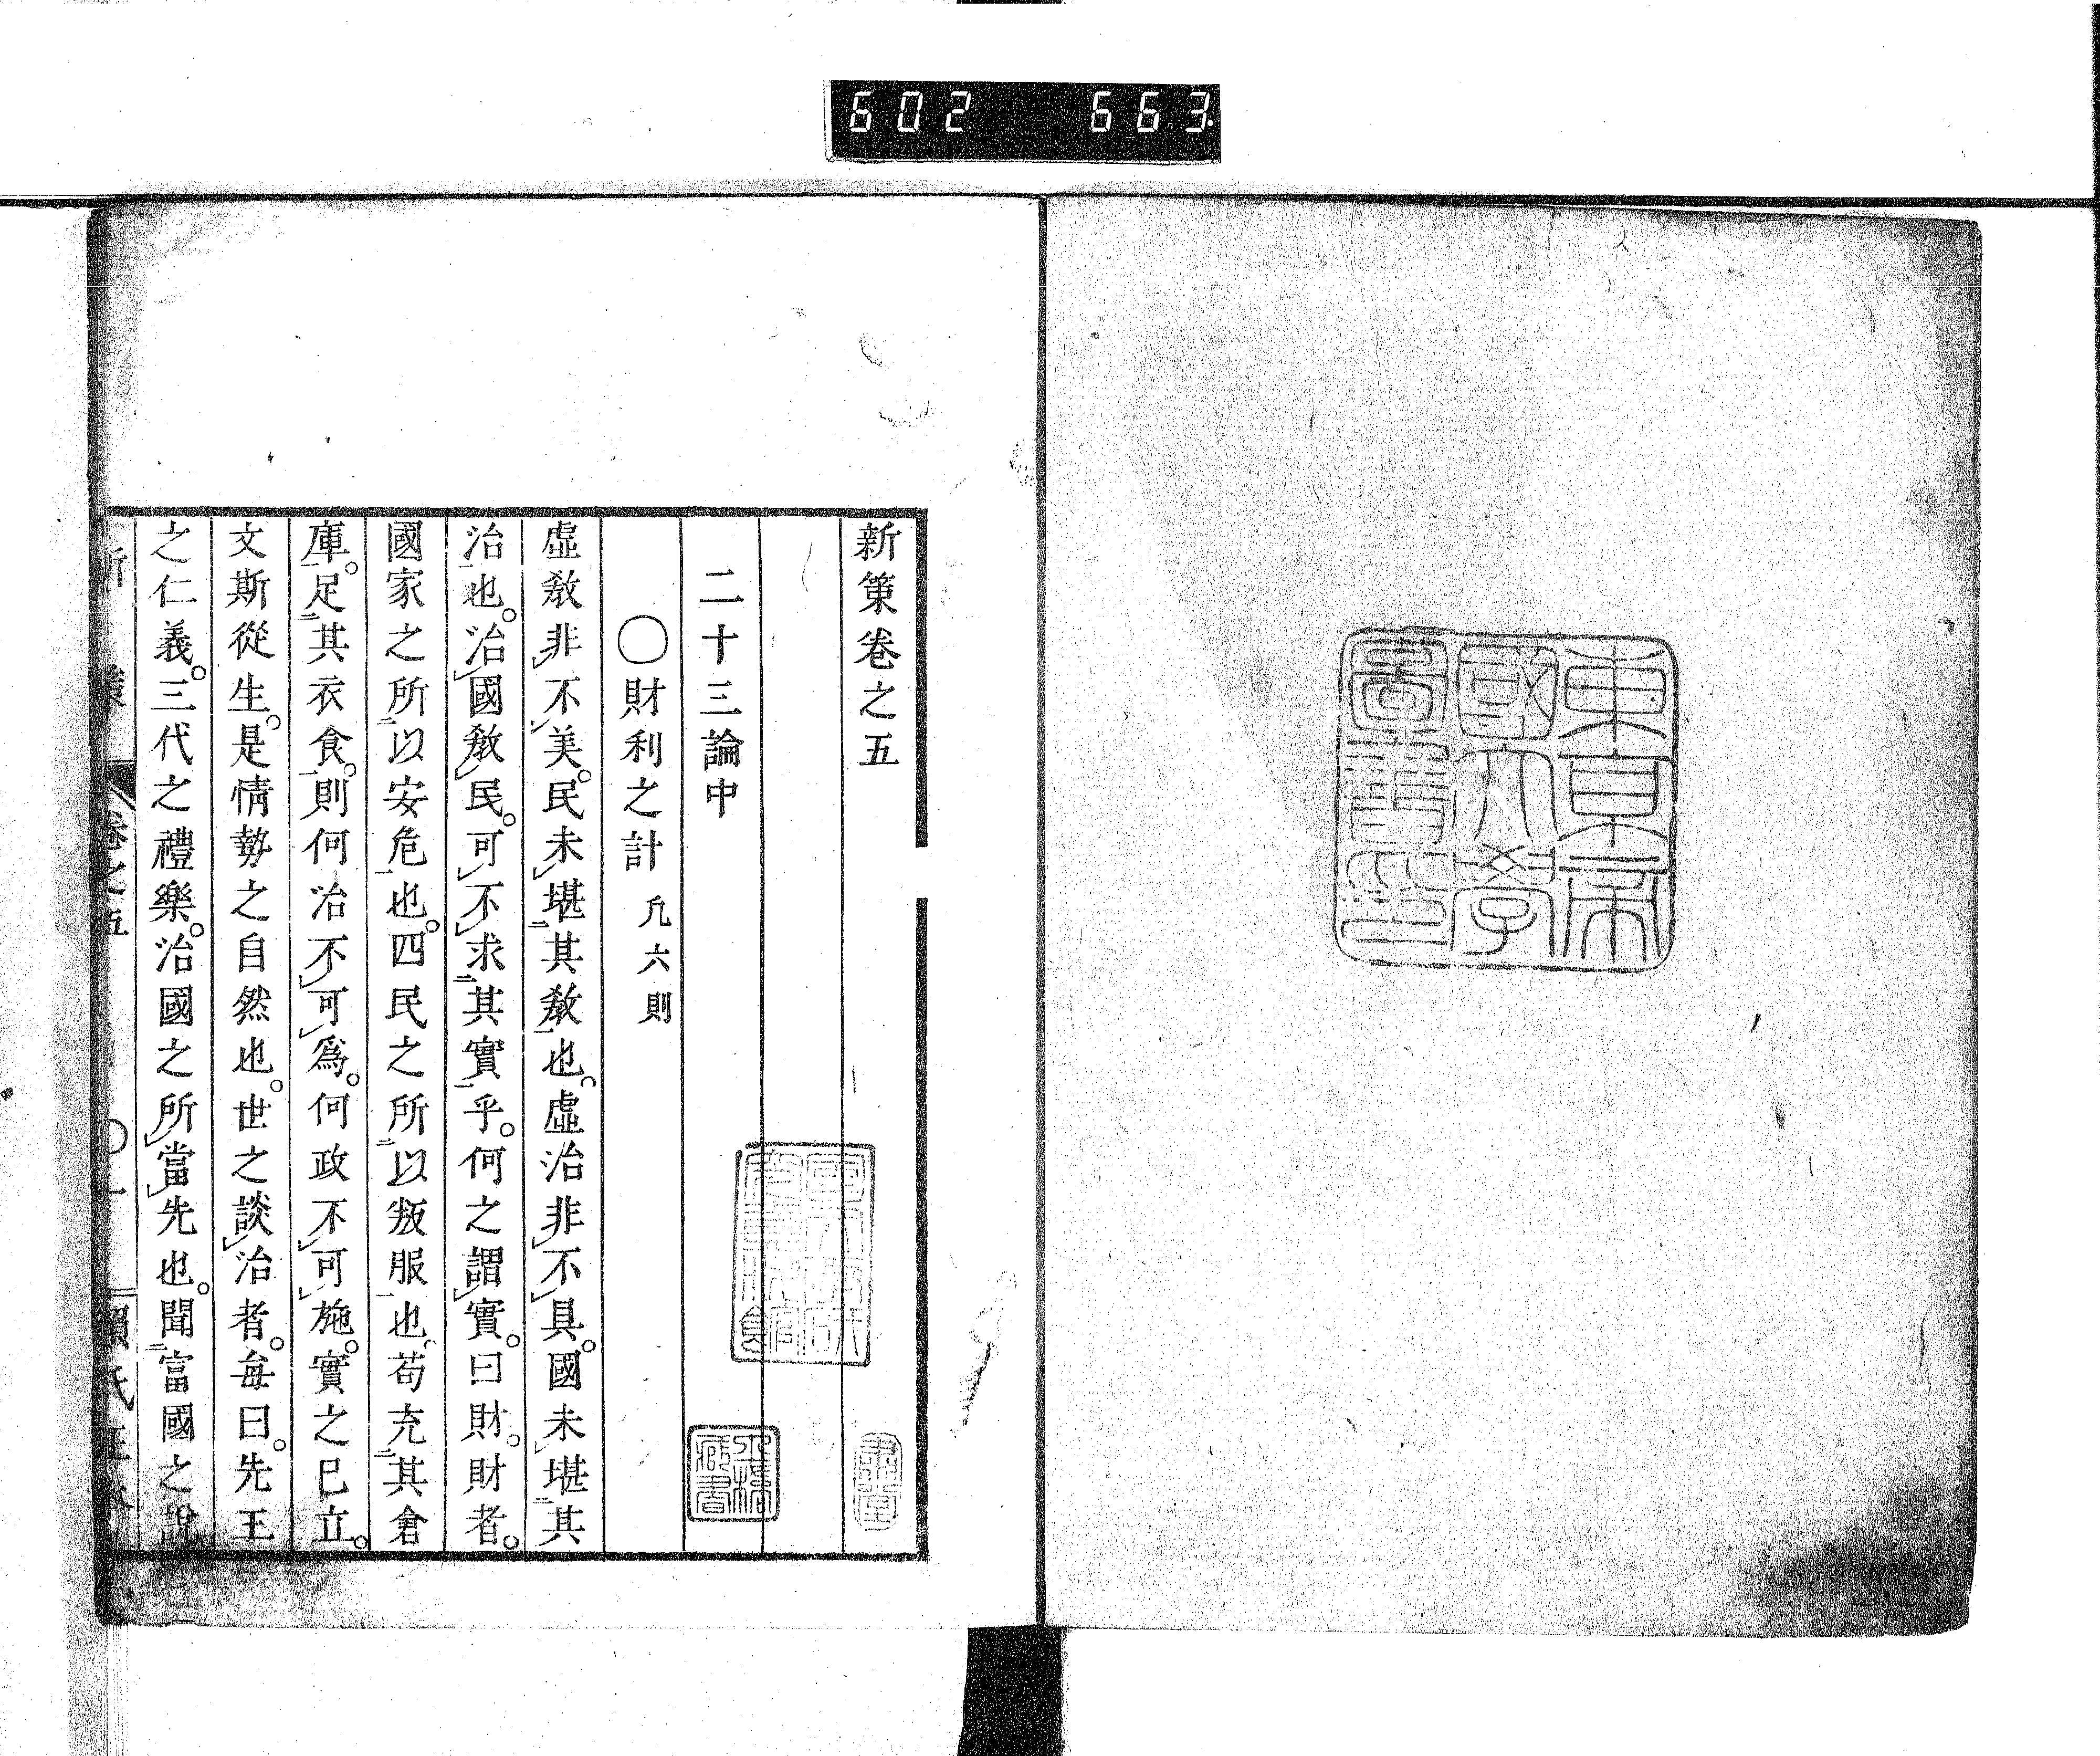 602 663
東京帝
國大學
圖書印
新策卷之五
二十三論中
○財利之計 凢六則
虛敎非不美。民未堪其敎也。虛治非不具。國未堪其
治也。治國敎民。可不求其實乎。何之謂實。曰財。財者。
國家之所以安危也。四民之所以叛服也。苟充其倉
庫。足其衣食。則何治不可爲。何政不可施。實之已立。
文斯從生。是情勢之自然也。世之談治者。每曰。先王
之仁義。三代之禮樂。治國之所當先也。聞富國之說
新策 卷之五 ○一